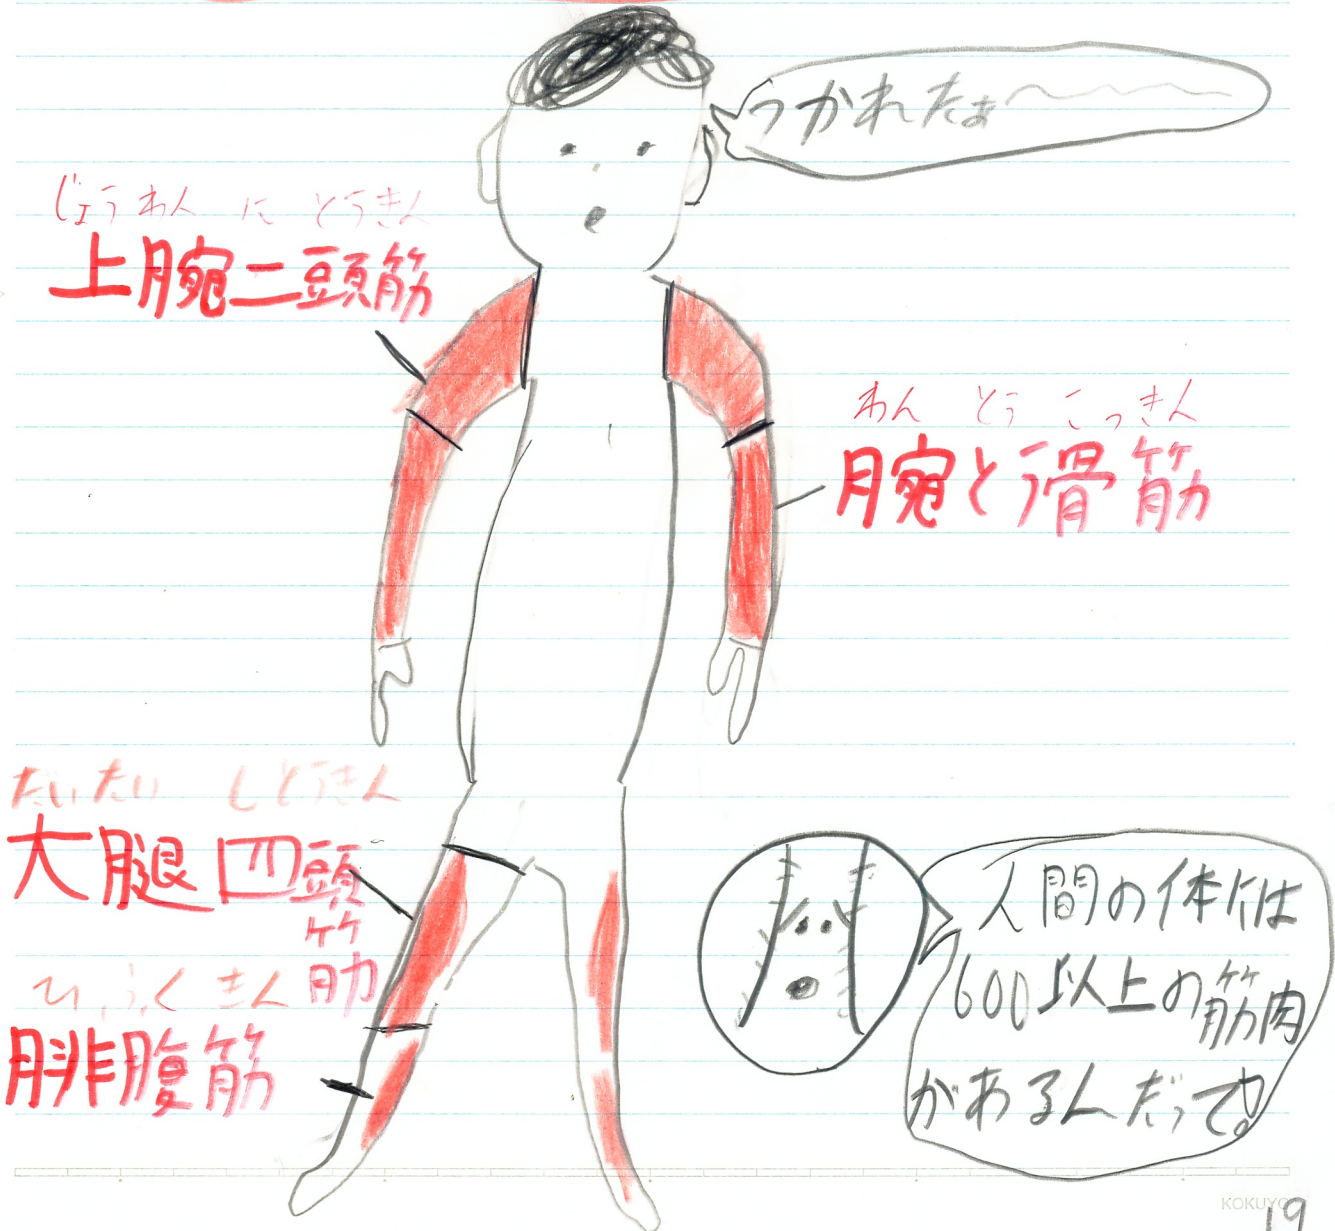 つかれたぁ〜〜〜
じょうわんにとうきん
上腕二頭筋
わんとうこっきん
腕とう骨筋
だいたいしとうきん
大腿四頭
筋
ひふくきん
腓腹筋
人間の体には
600以上の筋肉
があるんだって!
KOKUYO
19